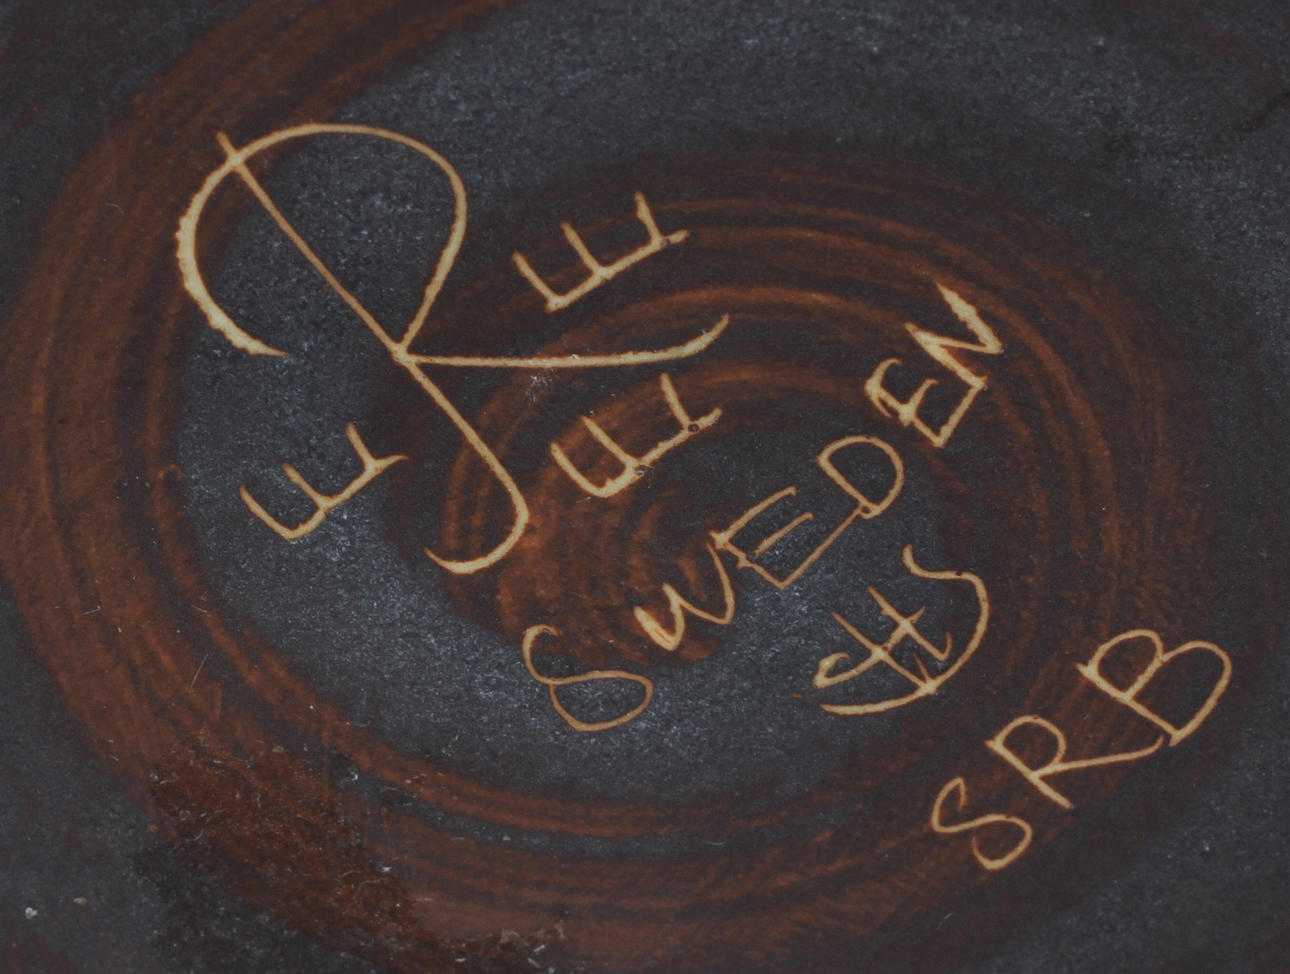 R E
E E
SWEDEN
SRB